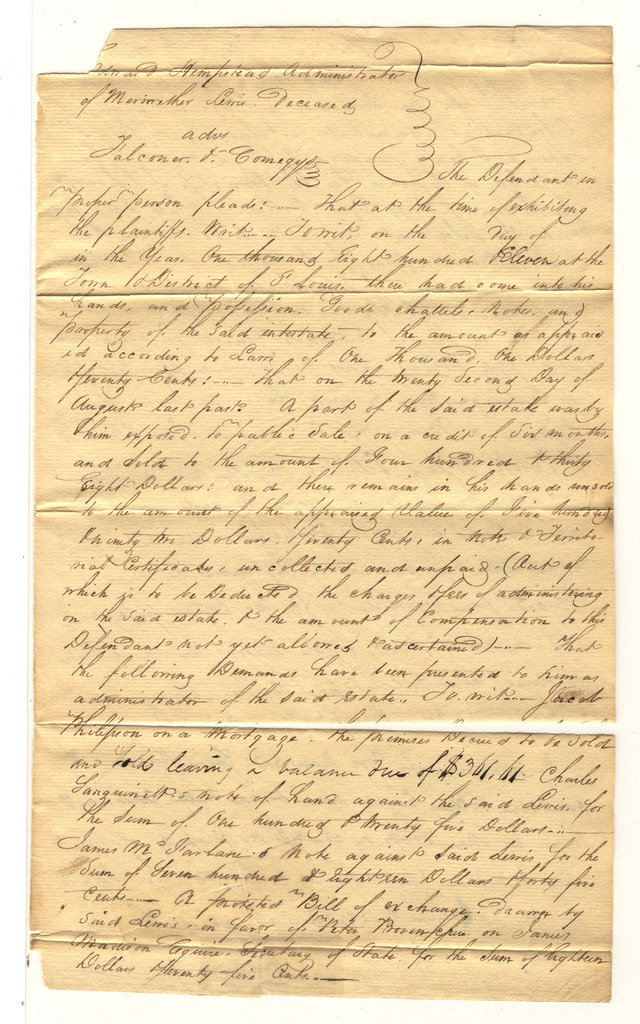 Edward Hempstead Administrator
of Meriwether Lewis Deceased
ads
Falconer & Comegys
The Defendant in
proper person pleads: — That at the time of exhibiting
the plaintiffs Writ — To wit, on the Day of
in the Year One thousand Eight hundred Eleven at the
Town & District of St Louis, there had come into his
hands, and possession, Goods chattels, Notes, and
property of the said intestate, to the amount as apprais
ed according to Law of One Thousand, One Dollars
& seventy Cents: — That on the twenty Second Day of
August last past. A part of the said estate was by
him exposed, to public Sale, on a credit of Six months,
and Sold to the amount of Four hundred & thirty
Eight Dollars: and there remains in his hands unsold
to the amount of the appraised Value of Five hundred
& ninety two Dollars, seventy Cents, in Notes & Territo-
rial Certificates, uncollected and unpaid — (Out of
which is to be Deducted the charges & fees of administering
on the said estate, & the amount of Compensation to this
Defendant not yet allowed & ascertained) — That
the following Demands have been presented to him as
administrator of the said estate. To wit — Jacob
Philipson on a Mortgage, the premises Decreed to be Sold
and Sold leaving a balance due of $341,61 Charles
Sanguinett's note of hand against the said Lewis, for
the Sum of One hundred & twenty five Dollars —
James McFarlane's Note against Said Lewis for the
Sum of Seven hundred & Eighteen Dollars & forty five
Cents — A protested Bill of exchange drawn by
Said Lewis, in favor of Peter Provenchere on James
Madison Esquire, Secretary of State for the Sum of Eighteen
Dollars & seventy five Cents —